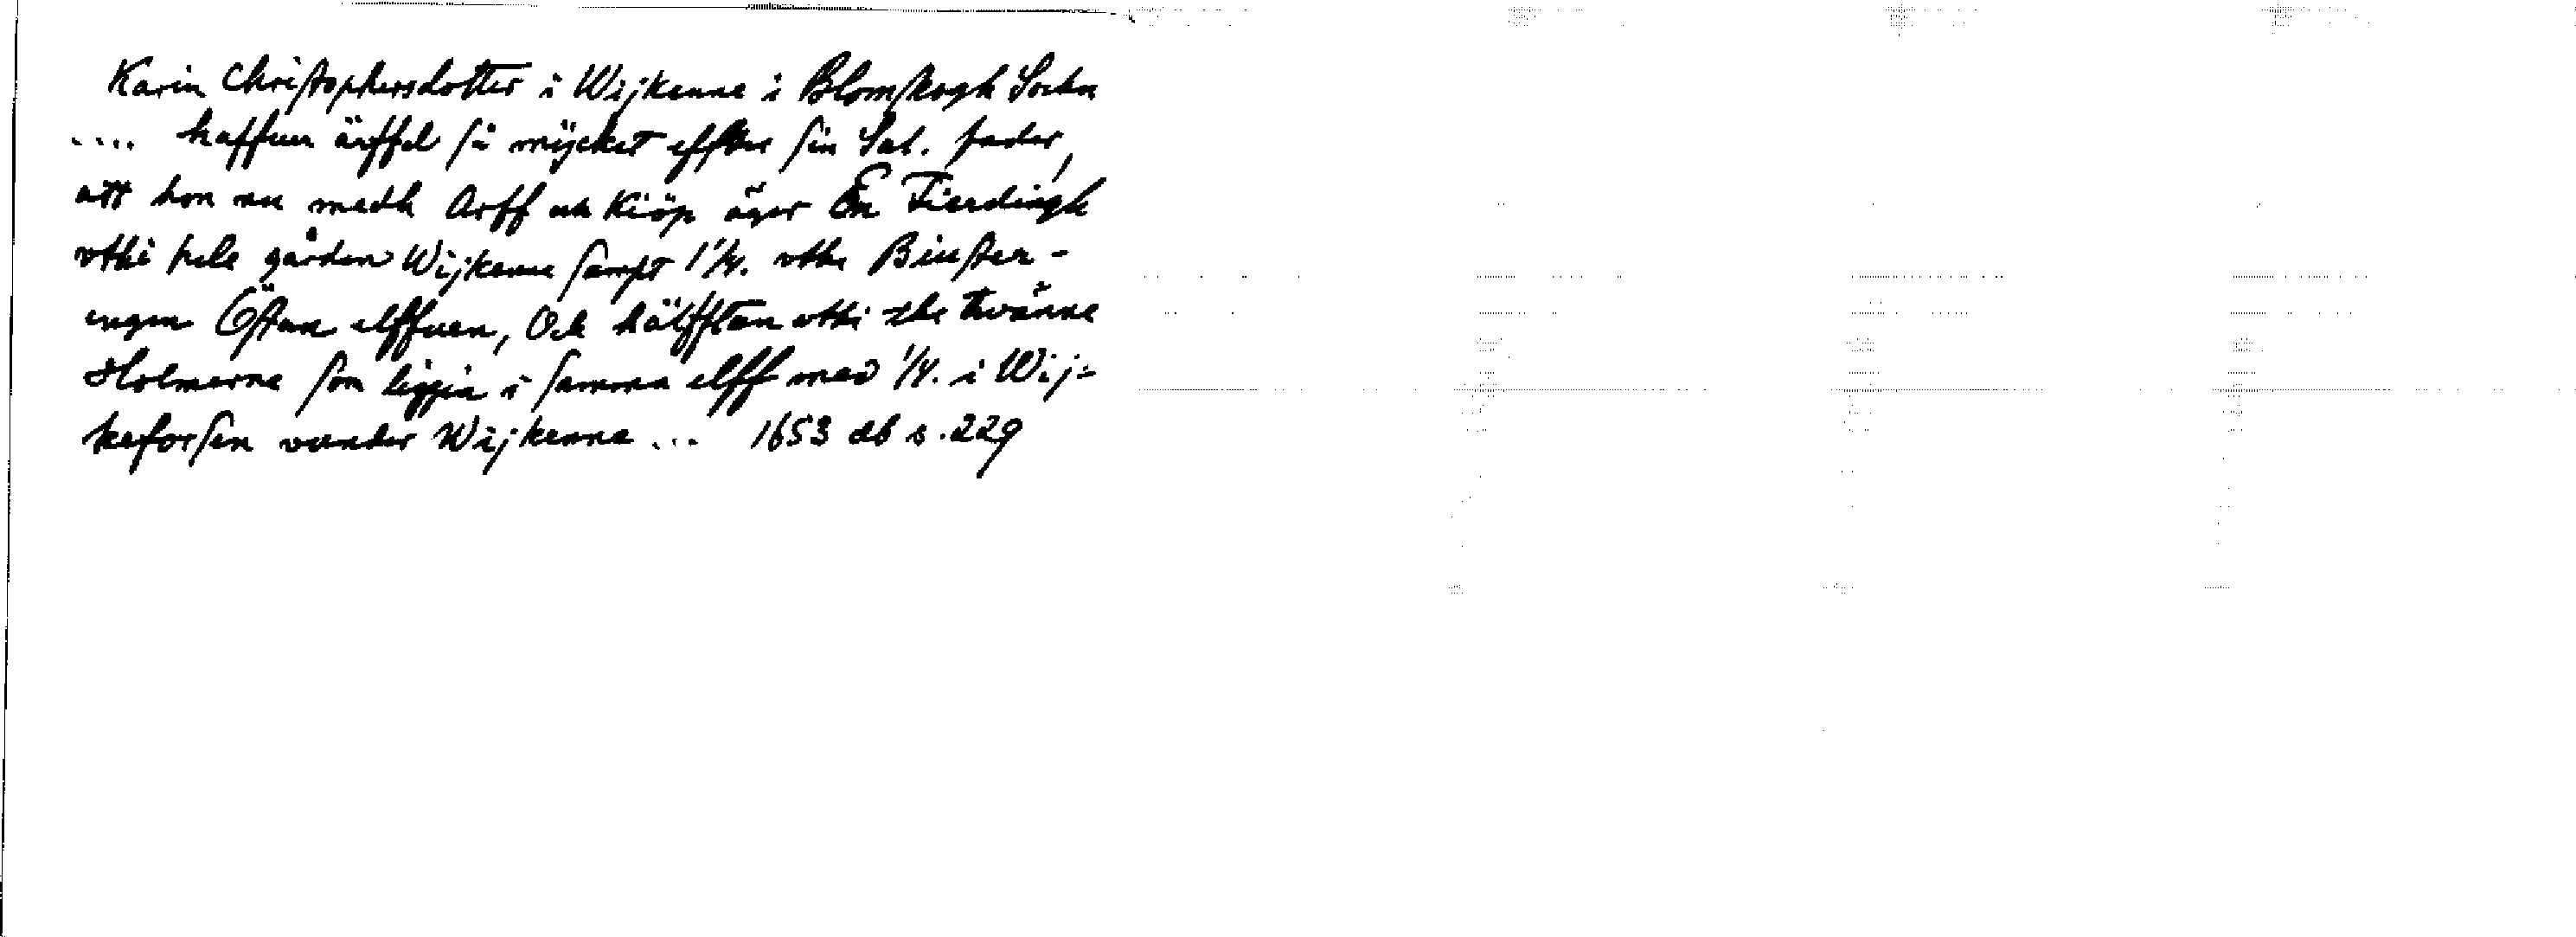 Karin Christophersdotter i Wijkenne i Blomskogh Sochn
.... haffuer ärffd så mÿcket effter sin Sal. fader,
att hon nu medh Arff och Kiöp äger En Fierdingh
vthi hele gården Wijkenne sampt 1/4. vthe
engen Östan elffuen, Och hälfften vthi the twänne
Holmerne som liggia i samma elff med 1/4. i Wij=
keforsen vunder Wijkenne ... 1653 db s. 229